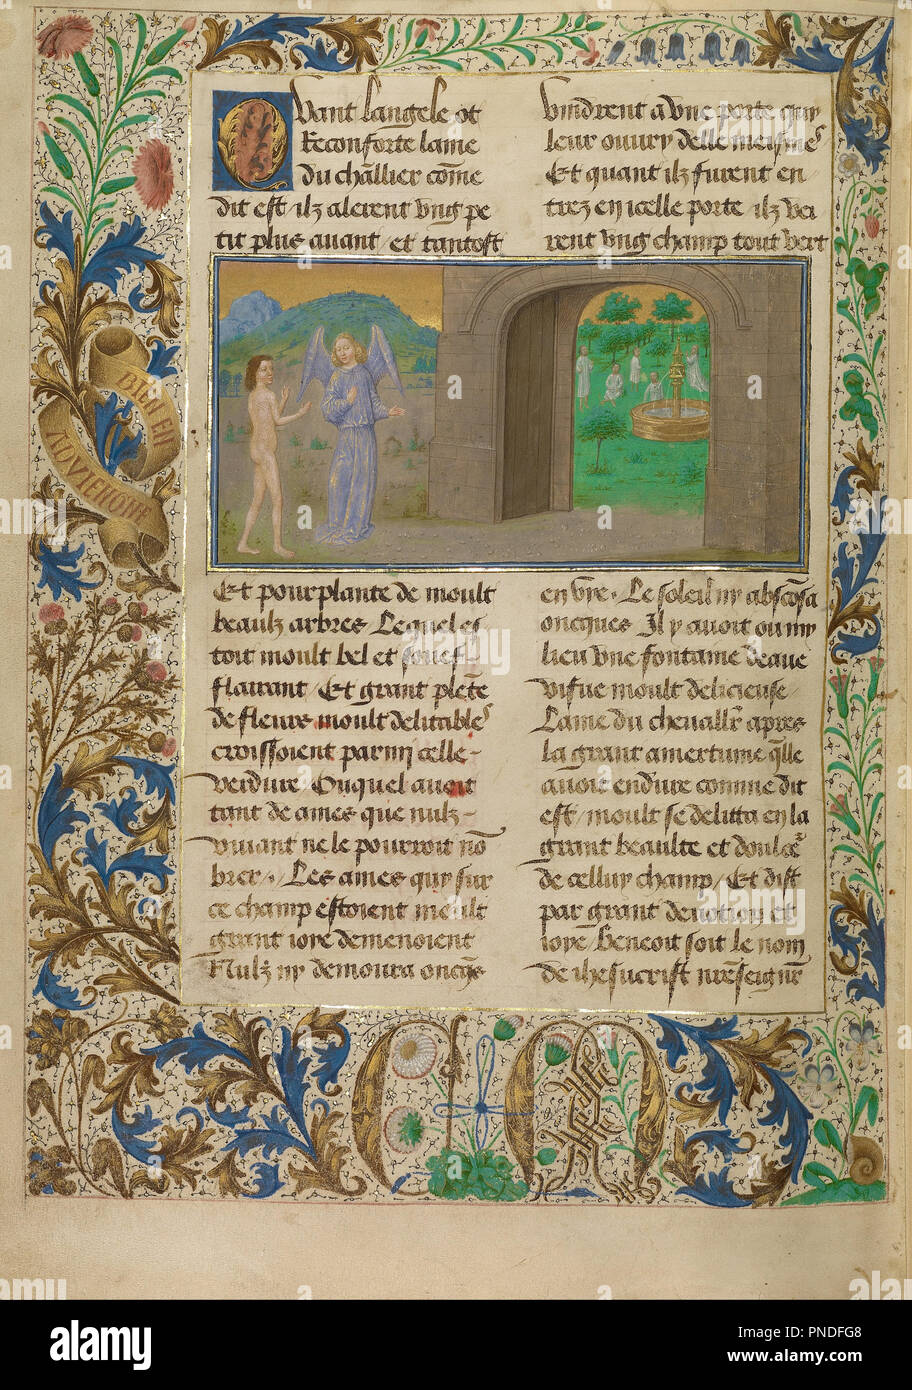 Quant langele ot
Reconforte lame
du chl̄lier cōme
dit est / ilz alerent vng pe
tit plus auant / et tantost
vindrent a vne porte quy
leur ouury delle meisme
Et quant ilz furent en
trez en icelle porte ilz vei
rent vng champ tout vert
BIEN EN
ADVIENGNE
Et pourplante de moult
beaulz arbres Lequel es
toit moult bel et souef
flairant / Et grant plēte
de fleurs moult delitables
croissoient parmi celle
verdure Ouquel auoit
tant de ames que nulz
viuant ne le pourroit nō
brer / Les ames quy sur
ce champ estoient moult
grant ioye demenoient
Nulz ny demoura oncq̄s
en vye . Le soleil ny absc̄osa
oncques Il y auoit ou my
lieu vne fontaine deaue
vifue moult delicieuse /
Lame du cheuallr̄ apres
la grant amertume q̄lle
auoit endure comme dit
est / moult se delitta en la
grant beaulte et doulcr̄
de celluy champ / Et dist
par grant deuotion et
ioye Benoit soit le nom
de ihesucrist nr̄e seignr̄
C M
alamy
Image ID: PNDFG8
www.alamy.com